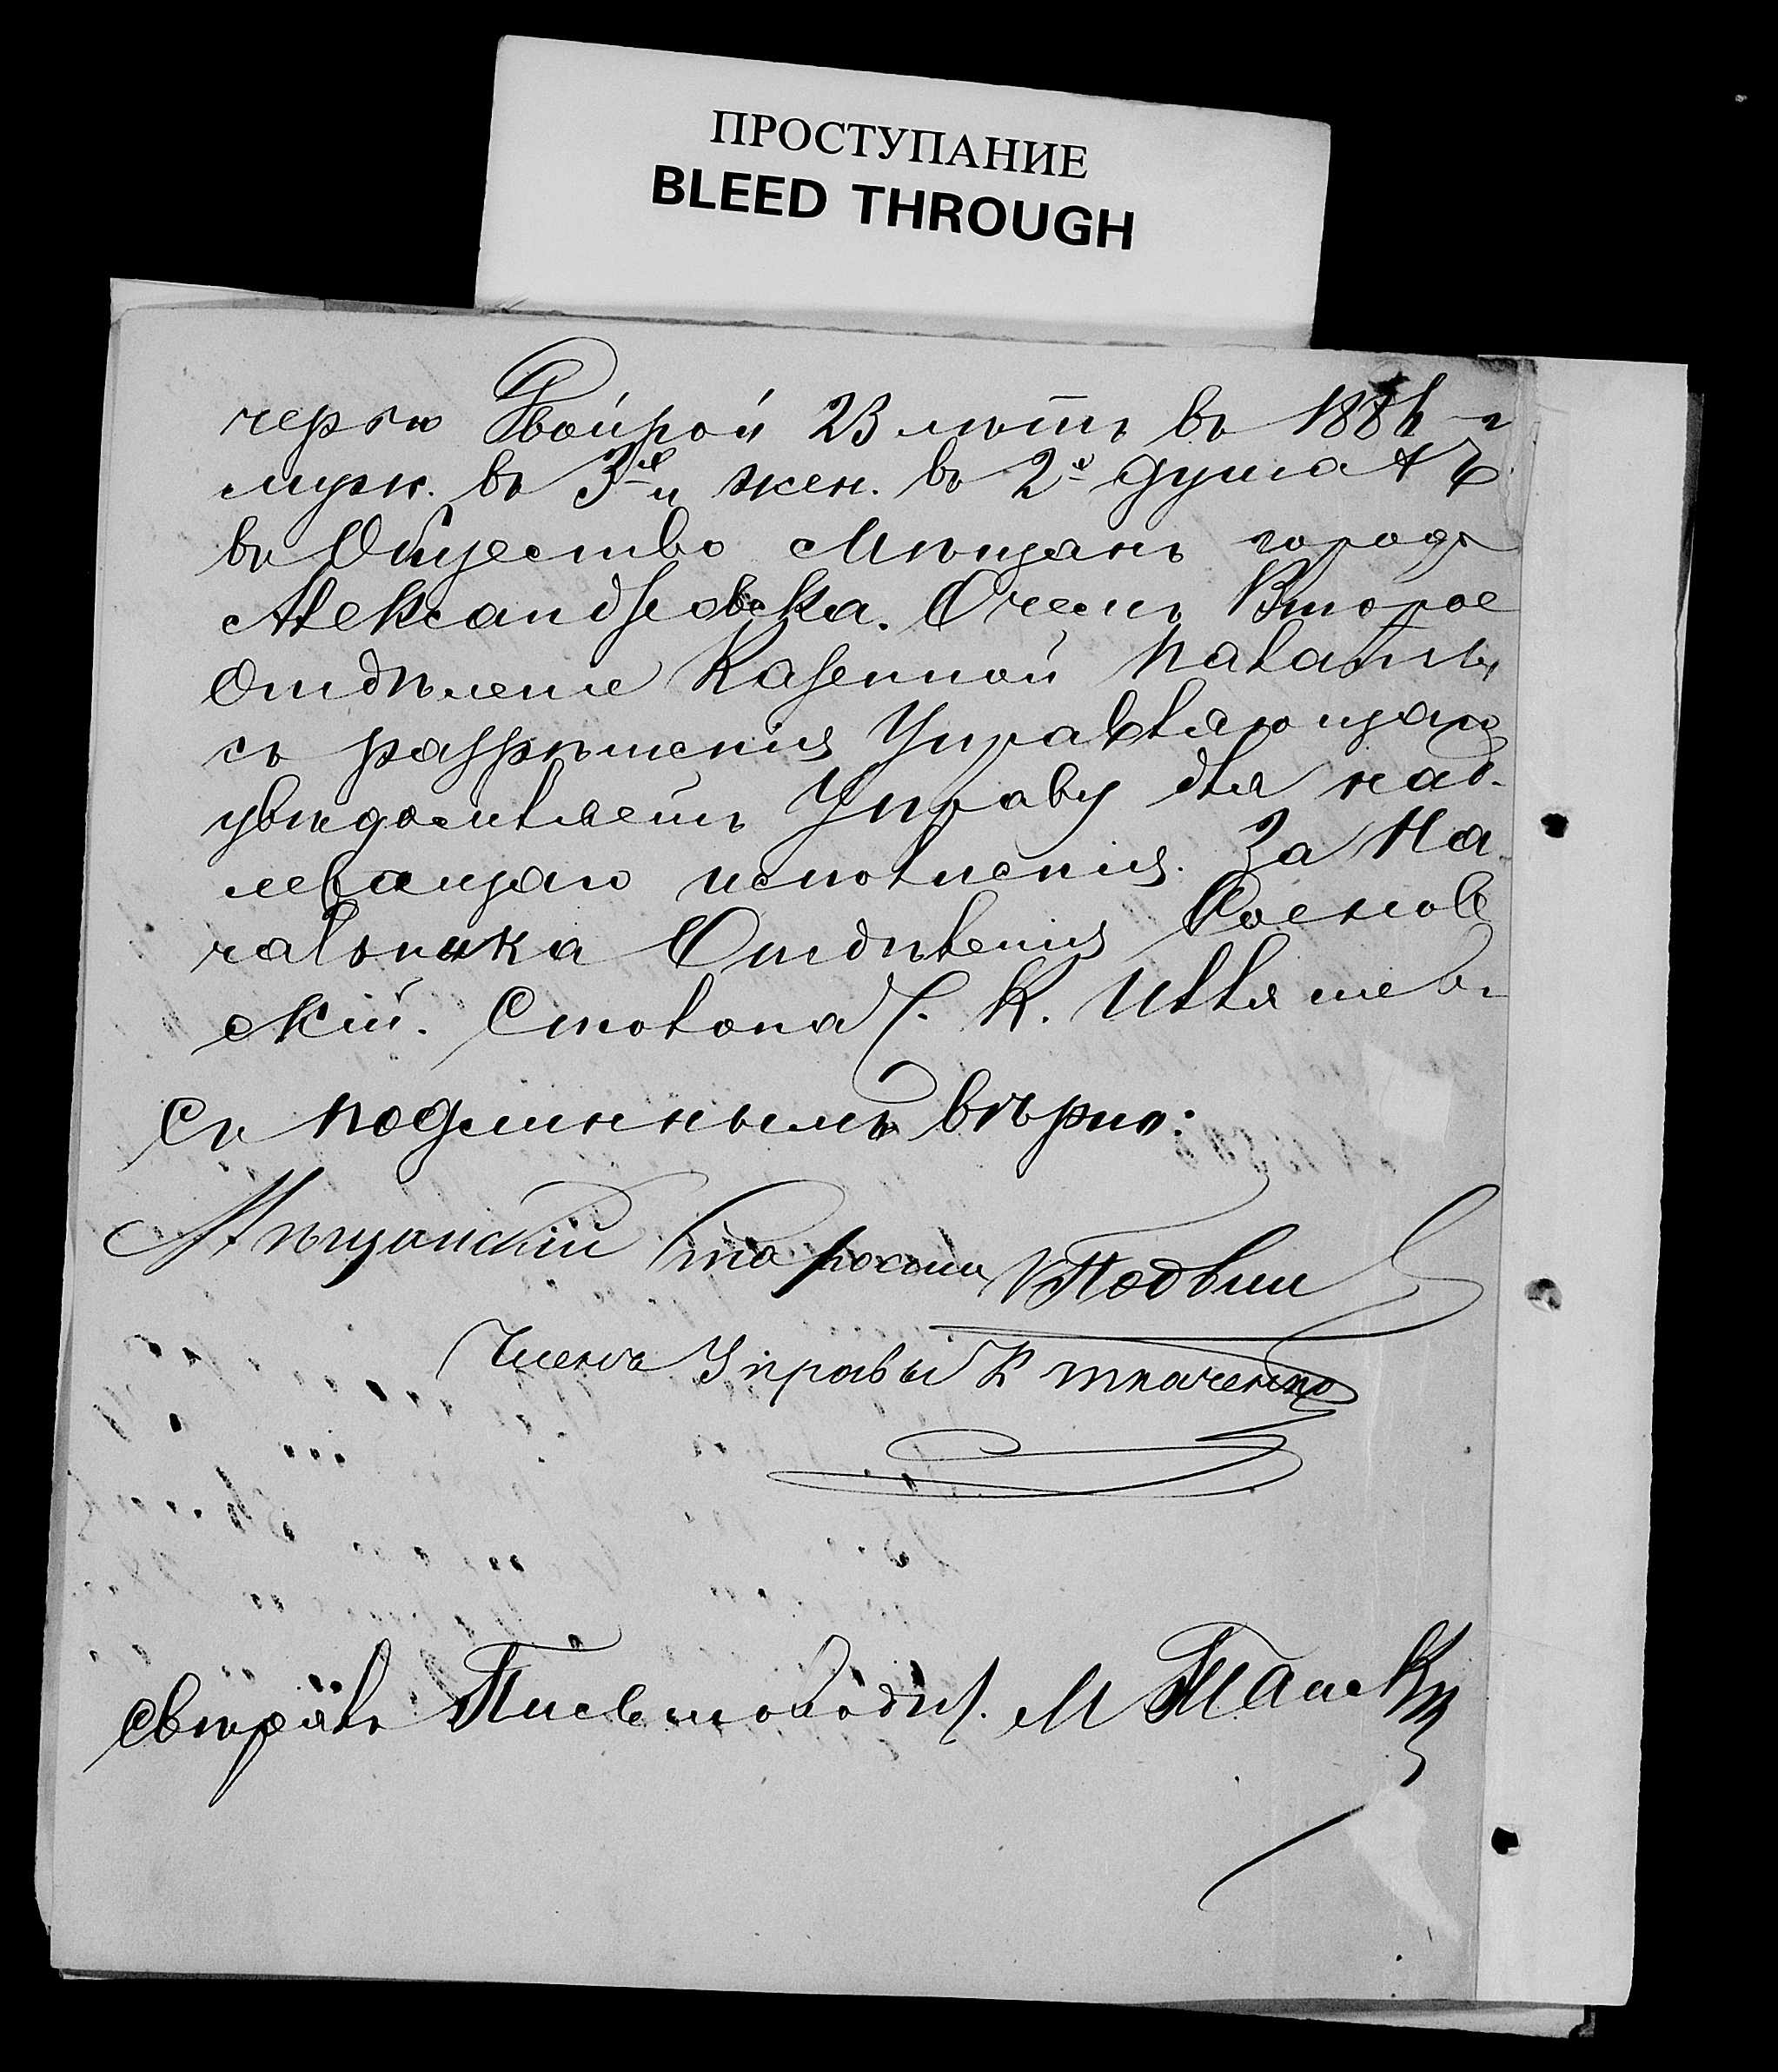 ПРОСТУПАНИЕ
BLEED THROUGH
черью Двойрой 23 лѣтъ въ 188 г
муж. въ 3х и жен. въ 2х душа
въ Общество Мѣщанъ города
Александровска. О чемъ Второе
Отдѣленіе Казенной Палаты,
съ разрѣшенія Управляющаго
увѣдомляетъ Управу для над-
лежащаго исполненія. За На
чальника Отдѣленія
скій. Столонач. К.
Съ подлиннымъ вѣрно:
Мѣщанскій Староста
Членъ Управы К Ткаченко
Свѣрялъ Письмоводит. М